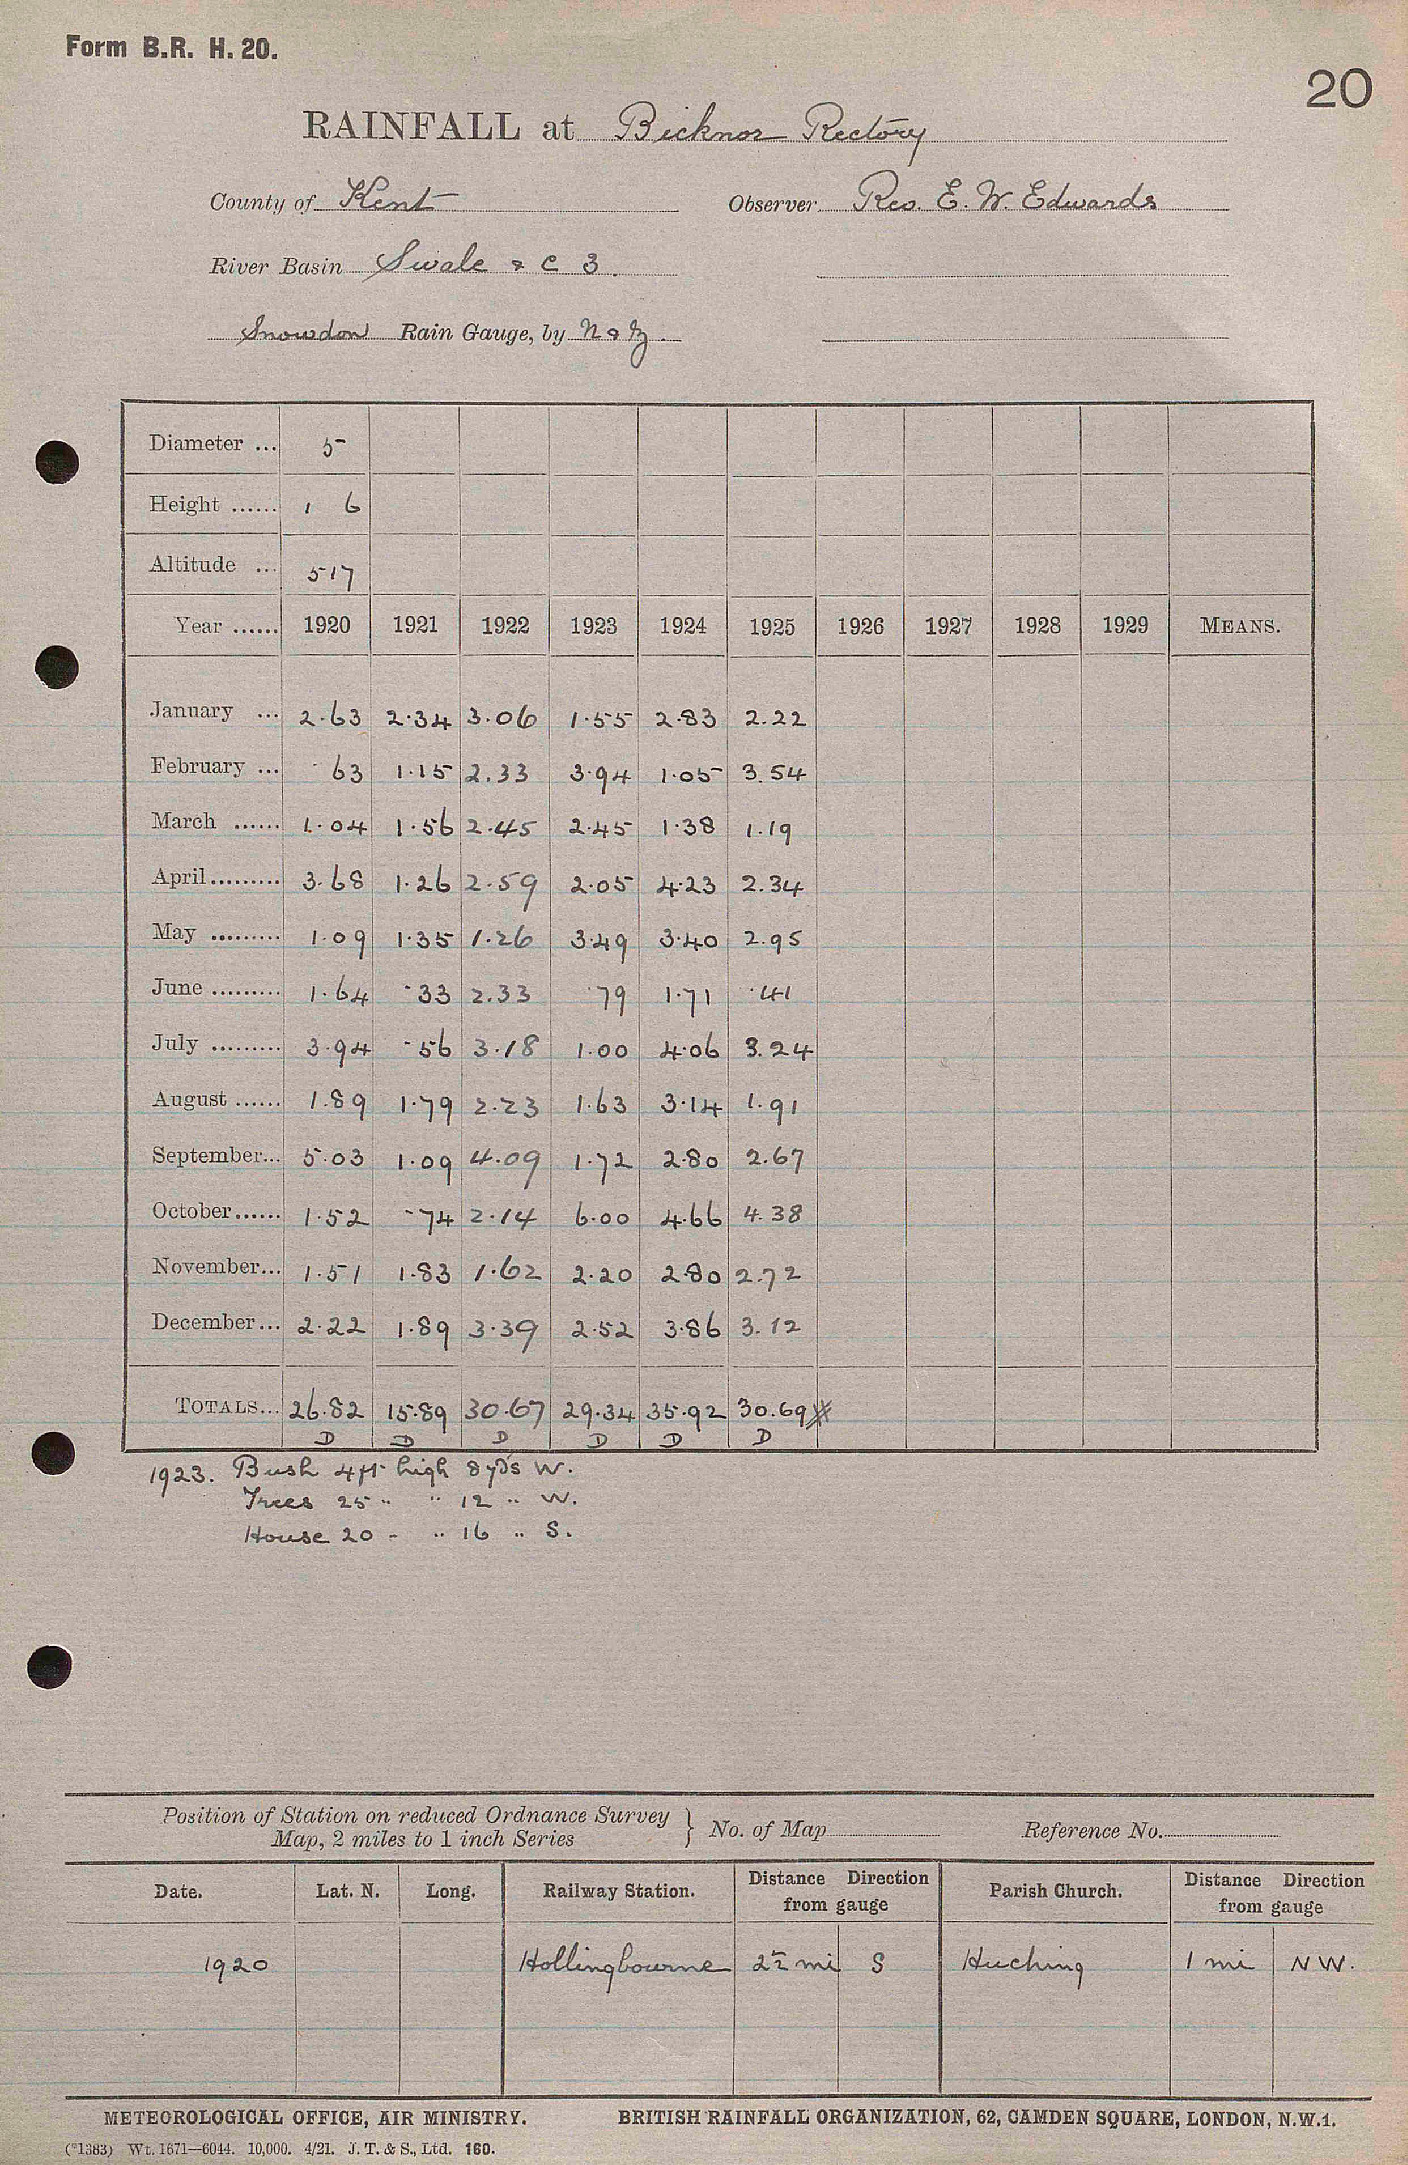 Form B.R. H. 20.
20
RAINFALL at Bicknor Rectory
County of Kent Observer Rev. E. W. Edwards
River Basin Swale & C 3.
Snowdon Rain Gauge, by N & Z.
Diameter ... 5
Height ...... 1 6
Altitude ... 517
Year ...... 1920 1921 1922 1923 1924 1925 1926 1927 1928 1929 MEANS.
January ... 2.63 2.34 3.06 1.55 2.83 2.22
February ... .63 1.15 2.33 3.94 1.05 3.54
March ...... 1.04 1.56 2.45 2.45 1.38 1.19
April......... 3.68 1.26 2.59 2.05 4.23 2.34
May ......... 1.09 1.35 1.26 3.49 3.40 2.95
June ......... 1.64 .33 2.33 .79 1.71 .41
July ......... 3.94 .56 3.18 1.00 4.06 3.24
August ...... 1.89 1.79 2.23 1.63 3.14 1.91
September... 5.03 1.09 4.09 1.72 2.80 2.67
October...... 1.52 .74 2.14 6.00 4.66 4.38
November... 1.51 1.83 1.62 2.20 2.80 2.72
December... 2.22 1.89 3.39 2.52 3.86 3.12
TOTALS... 26.82 15.89 30.67 29.34 35.92 30.69
D D D D D D
1923. Bush 4ft high 8yds W.
Trees 25 " " 12 " W.
House 20 " " 16 " S.
Position of Station on reduced Ordnance Survey
Map, 2 miles to 1 inch Series } No. of Map Reference No.
Date. Lat. N. Long. Railway Station. Distance Direction from gauge Parish Church. Distance Direction from gauge
1920 Hollingbourne 2½ mi S Hucking 1 mi NW.
METEOROLOGICAL OFFICE, AIR MINISTRY. BRITISH RAINFALL ORGANIZATION, 62, CAMDEN SQUARE, LONDON, N.W.1.
(*1383) Wt. 1671—6044. 10,000. 4/21. J. T. & S., Ltd. 160.